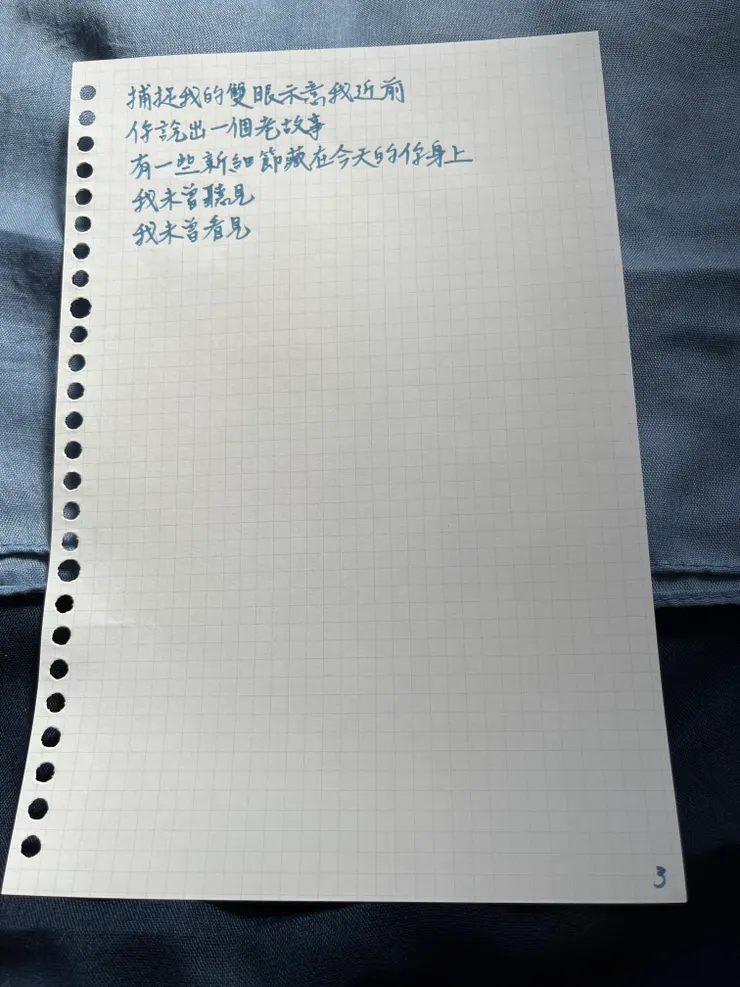 捕捉我的雙眼示意我近前
你說出一個老故事
有一些新細節藏在今天的你身上
我未曾聽見
我未曾看見
3